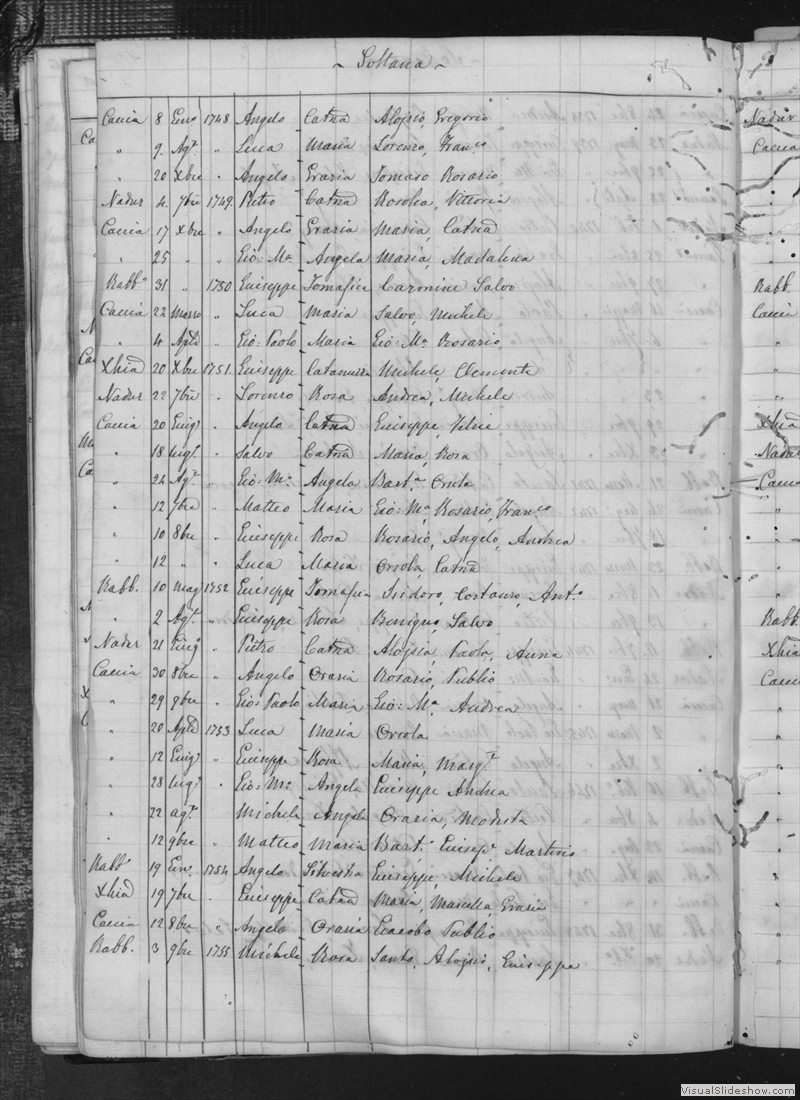 ~ Soltana ~
Caccia 8 Gen.o 1748 Angelo Catna Alojsio, Gregorio
" 9 Agt. " Luca Maria Lorenzo, Franc.o
" 20 Xbre " Angelo Grazia Tomaso Rosario
Nadur 4 7bre 1749 Pietro Catna Rosolea, Vittoria
Caccia 17 Xbre " Angelo Grazia Maria, Catna
" 25 " " Gio: Ma. Angela Maria, Madalena
Rabb.o 31 " 1750 Giuseppe Carmine Salvo
Caccia 22 Marzo " Luca Maria Salvo, Michele
" 4 Aple " Gio: Paolo Maria Gio: Ma. Rosario
Xhia 20 Xbre 1751 Giuseppe Michele, Clemente
Nadur 22 7bre " Lorenzo Rosa Andrea, Michele
Caccia 20 Giug. " Angelo Catna Giuseppe, Felice
" 18 Lugl. " Salvo Catna Maria, Rosa
" 24 Agt. " Gio: Ma. Angela Bart.a Orsola
" 12 7bre " Matteo Maria Gio: Ma. Rosario, Franc.o
" 10 8bre " Giuseppe Rosa Rosario, Angelo, Andrea
" 12 " " Luca Maria Orsola, Catna
Rabb. 10 Mag. 1752 Giuseppe Isidoro, Ant.o
" 2 Agt. " Giuseppe Rosa Benigno, Salvo
Nadur 21 Giug. " Pietro Catna Alojsia, Paola, Anna
Caccia 30 8bre " Angelo Orazia Rosario, Publio
" 29 9bre " Gio: Paolo Maria Gio: Ma. Andrea
" 20 Aple 1753 Luca Maria Orsola
" 12 Giug. " Giuseppe Rosa Maria, Marg.t
" 28 Lugl. " Gio: Ma. Angela Giuseppe Andrea
" 22 Agt. Michele Angela Orazia, Modesta
" 12 9bre " Matteo Maria Bart. Giusep. Martino
Rabb.o 19 Gen. 1754 Angelo Silvestra Giuseppe, Michele
Xhia 19 7bre " Giuseppe Catna Maria, Marcella, Grazia
Caccia 12 8bre " Angelo Orazia Giacobo Publio
Rabb. 3 9bre 1755 Michele Rosa Santo, Alojsio, Giuseppe
Nadur
Caccia
Rabb.
Caccia
Xhia
Nadur
Caccia
Rabb.
Xhia
Caccia
VisualSlideshow.com